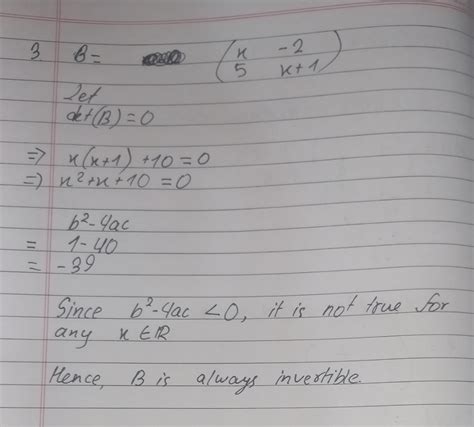 3. B = ( x -2
5 x+1 )
Let
det(B) = 0
=> x(x+1) +10 = 0
=> x²+x+10 = 0
b²-4ac
= 1-40
= -39
Since b²-4ac <0, it is not true for
any x ∈ ℝ
Hence, B is always invertible.